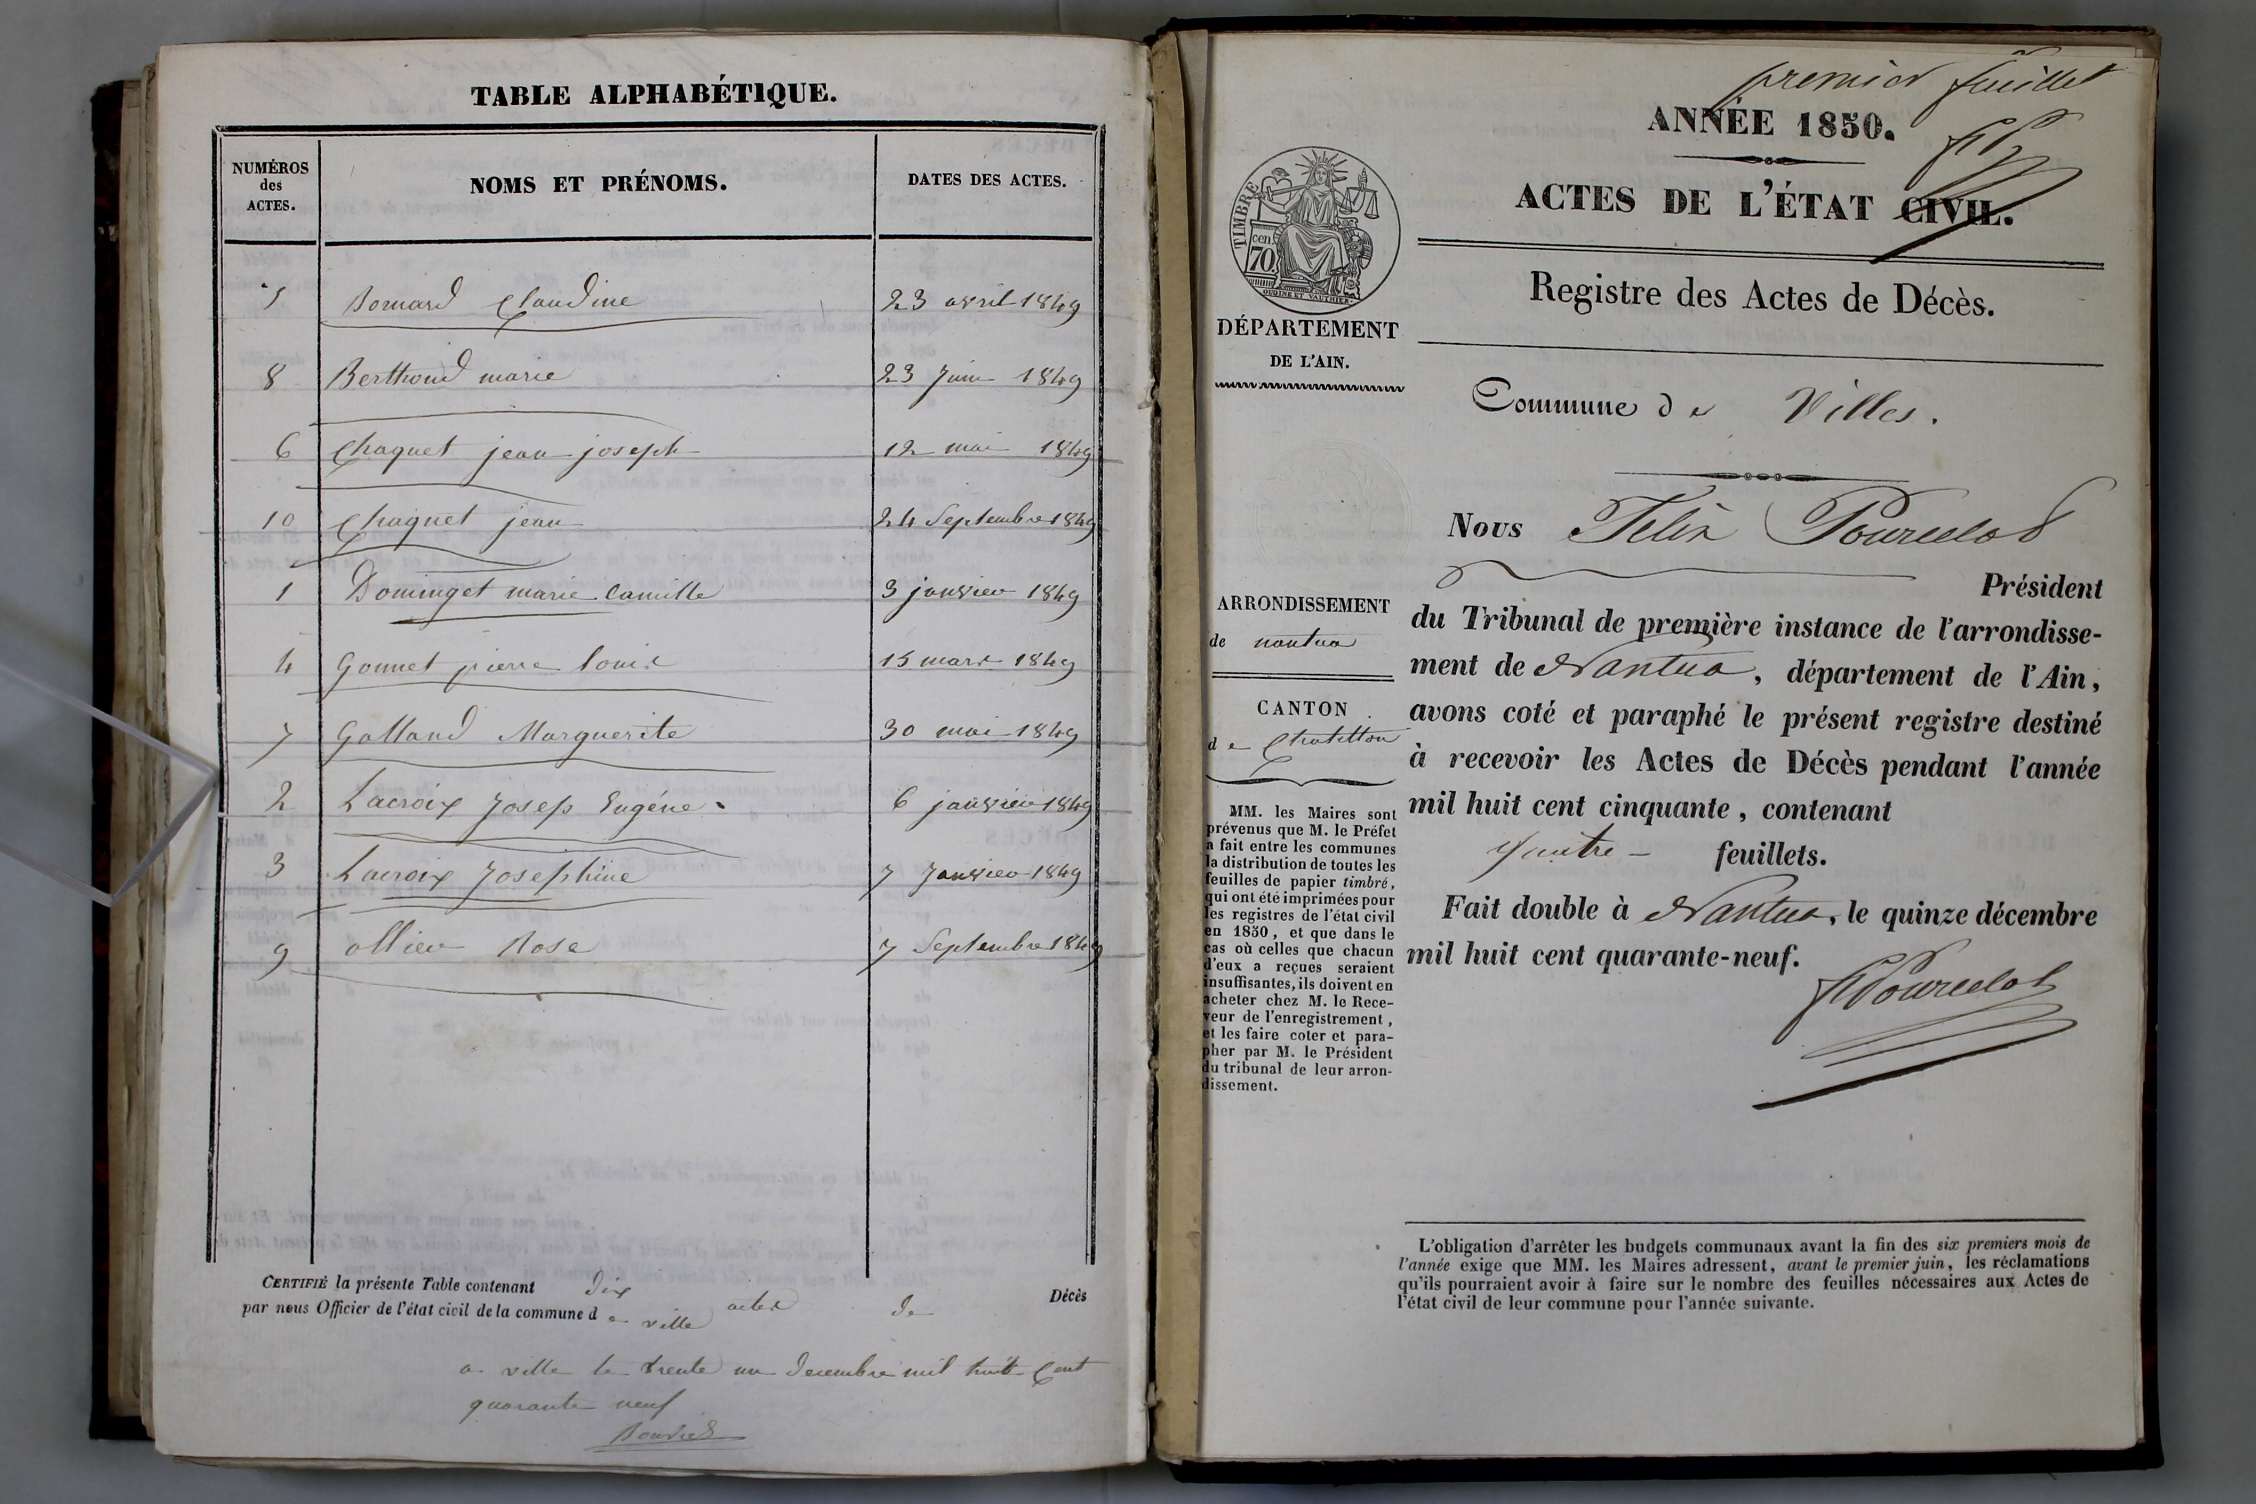 TABLE ALPHABÉTIQUE.
NUMÉROS des ACTES. NOMS ET PRÉNOMS. DATES DES ACTES.
5 Bornard Claudine 23 avril 1849
8 Berthoud marie 23 juin 1849
6 Chaquet jean joseph 12 mai 1849
10 Chaquet jean 24 Septembre 1849
1 Dominget marie Camille 3 janvier 1849
4 Gonnet pierre louis 15 mars 1849
7 Galland Marguerite 30 mai 1849
2 Lacroix Josep Eugéne. 6 janvier 1849
3 Lacroix Josephine 7 Janvier 1849
9 ollier Rose 7 Septembre 1849
CERTIFIÉ la présente Table contenant dix actes de Décès
par nous Officier de l'état civil de la commune de ville
a ville le trente un decembre mil huit Cent
quarante neuf
premier feuillet
ANNÉE 1850.
ACTES DE L'ÉTAT CIVIL.
TIMBRE
70 cen
OUDINÉ ET VAUTHIER.
DÉPARTEMENT
DE L'AIN.
Registre des Actes de Décès.
Commune de Villes.
Nous Félix Pourcelot
Président
du Tribunal de première instance de l'arrondisse-
ment de Nantua, département de l'Ain,
avons coté et paraphé le présent registre destiné
à recevoir les Actes de Décès pendant l'année
mil huit cent cinquante, contenant
quatre feuillets.
Fait double à Nantua, le quinze décembre
mil huit cent quarante-neuf.
Pourcelot
ARRONDISSEMENT
de nantua
CANTON
de Chatillon
MM. les Maires sont
prévenus que M. le Préfet
a fait entre les communes
la distribution de toutes les
feuilles de papier timbré,
qui ont été imprimées pour
les registres de l'état civil
en 1850, et que dans le
cas où celles que chacun
d'eux a reçues seraient
insuffisantes, ils doivent en
acheter chez M. le Rece-
veur de l'enregistrement,
et les faire coter et para-
pher par M. le Président
du tribunal de leur arron-
dissement.
L'obligation d'arrêter les budgets communaux avant la fin des six premiers mois de
l'année exige que MM. les Maires adressent, avant le premier juin, les réclamations
qu'ils pourraient avoir à faire sur le nombre des feuilles nécessaires aux Actes de
l'état civil de leur commune pour l'année suivante.